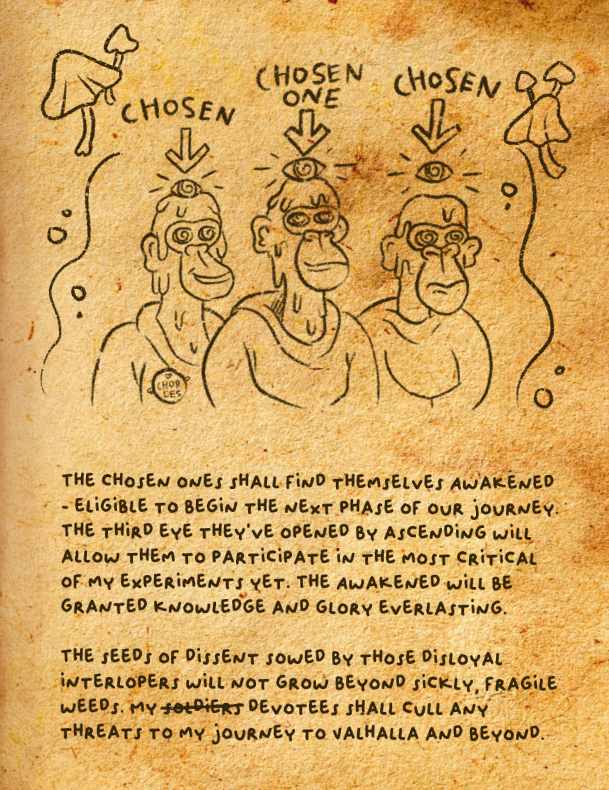 CHOSEN
CHOSEN
ONE
CHOSEN
CHOP
LES
THE CHOSEN ONES SHALL FIND THEMSELVES AWAKENED
- ELIGIBLE TO BEGIN THE NEXT PHASE OF OUR JOURNEY.
THE THIRD EYE THEY'VE OPENED BY ASCENDING WILL
ALLOW THEM TO PARTICIPATE IN THE MOST CRITICAL
OF MY EXPERIMENTS YET. THE AWAKENED WILL BE
GRANTED KNOWLEDGE AND GLORY EVERLASTING.
THE SEEDS OF DISSENT SOWED BY THOSE DISLOYAL
INTERLOPERS WILL NOT GROW BEYOND SICKLY, FRAGILE
WEEDS. MY SOLDIERS DEVOTEES SHALL CULL ANY
THREATS TO MY JOURNEY TO VALHALLA AND BEYOND.